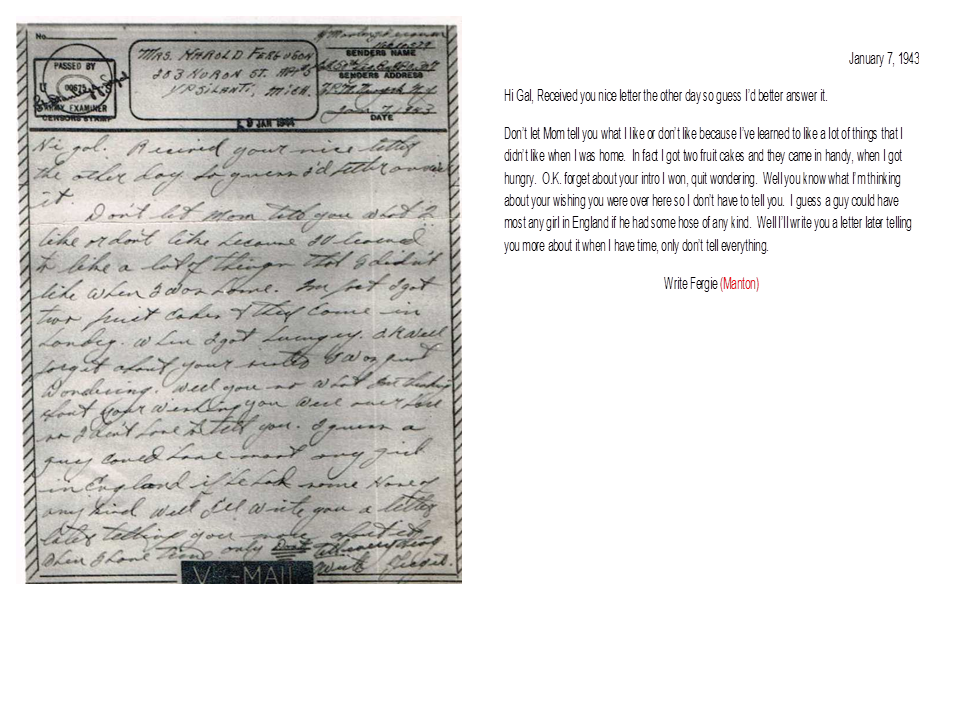 No.
PASSED BY
U
00675
ARMY EXAMINER
CENSOR'S STAMP
MRS. HAROLD FERGUSON
203 HURON ST. APT 5
YPSILANTI, MICH.
SENDERS NAME
SENDERS ADDRESS
Jan 7, 1943
DATE
JAN
Hi gal. Recived your nice letter
the other day so guess I'd better answer
it.
Don't let Mom tell you what I
like or don't like because I've learned
to like a lot of things that I didn't
like when I was home. In fact I got
two fruit cakes & they came in
handy. when I got hungry. O.K. well
forget about your
wondering. Well you no what I'm thinking
about your wishing you were over here
so I don't have to tell you. I guess a
guy could have most any girl
in England if he had some Hose of
any kind. Well I'll write you a letter
later telling you more about it
when I have time only Don't tell everything
Write Fergie.
V-MAIL
January 7, 1943
Hi Gal, Received you nice letter the other day so guess I'd better answer it.
Don't let Mom tell you what I like or don't like because I've learned to like a lot of things that I
didn't like when I was home. In fact I got two fruit cakes and they came in handy, when I got
hungry. O.K. forget about your intro I won, quit wondering. Well you know what I'm thinking
about your wishing you were over here so I don't have to tell you. I guess a guy could have
most any girl in England if he had some hose of any kind. Well I'll write you a letter later telling
you more about it when I have time, only don't tell everything.
Write Fergie (Manton)